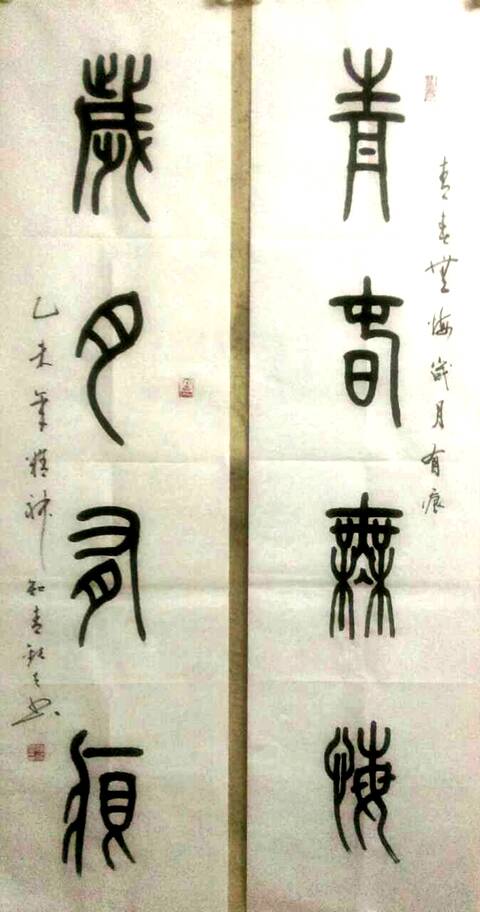 青春無悔
青春無悔歲月有痕
歲月有痕
乙未年
知青